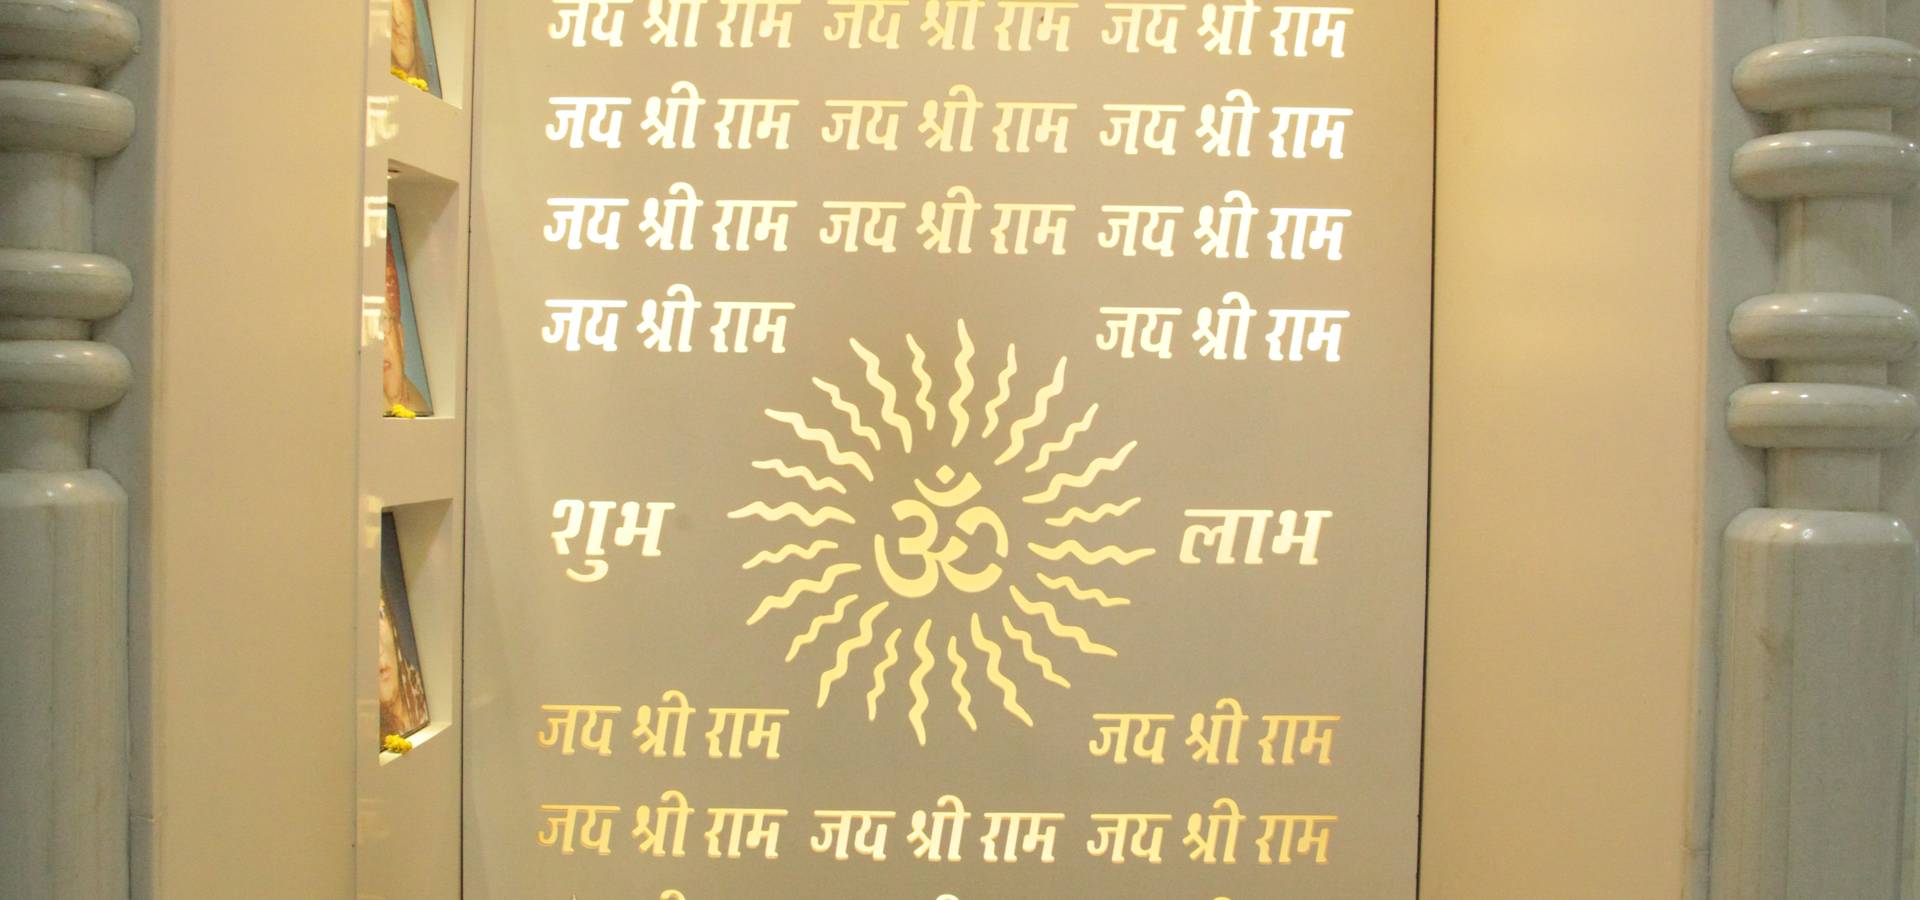 जय श्री राम जय श्री राम जय श्री राम
जय श्री राम जय श्री राम जय श्री राम
जय श्री राम जय श्री राम जय श्री राम
जय श्री राम जय श्री राम
शुभ ॐ लाभ
जय श्री राम जय श्री राम
जय श्री राम जय श्री राम जय श्री राम